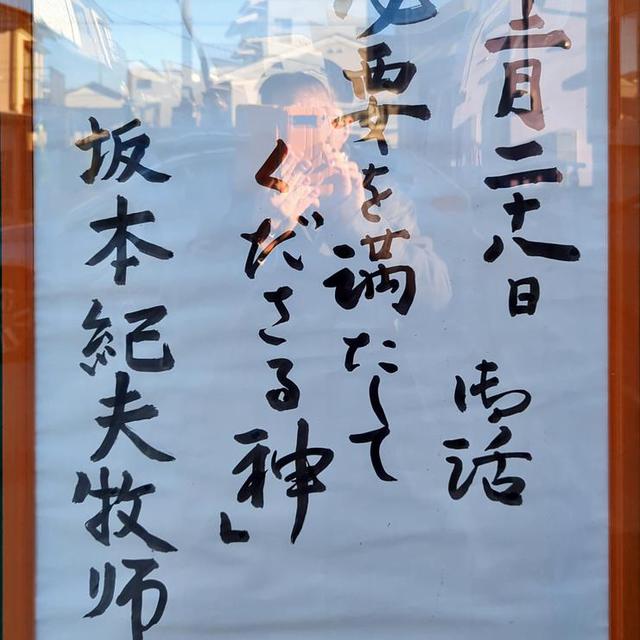 十二月二十八日 御話
必要を満たして
くださる神」
坂本紀夫牧師